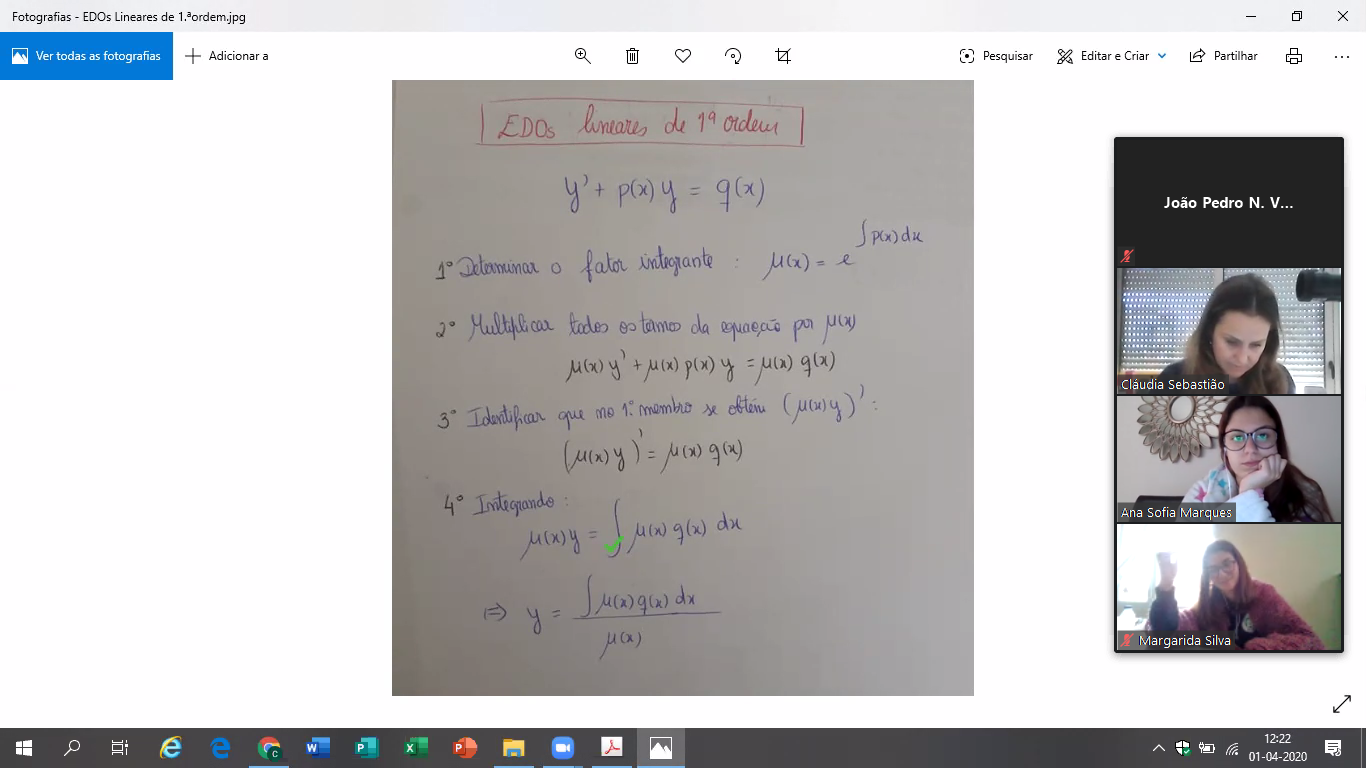 Fotografias - EDOs Lineares de 1.ªordem.jpg
Ver todas as fotografias
Adicionar a
Pesquisar
Editar e Criar
Partilhar
EDOs lineares de 1ª ordem
y' + p(x) y = q(x)
1º Determinar o fator integrante : μ(x) = e^∫p(x)dx
2º Multiplicar todos os termos da equação por μ(x)
μ(x) y' + μ(x) p(x) y = μ(x) q(x)
3º Identificar que no 1º membro se obtém (μ(x) y)' :
(μ(x) y)' = μ(x) q(x)
4º Integrando :
μ(x) y = ∫ μ(x) q(x) dx
⇔ y = ∫ μ(x) q(x) dx
μ(x)
João Pedro N. V...
Cláudia Sebastião
Ana Sofia Marques
Margarida Silva
12:22
01-04-2020